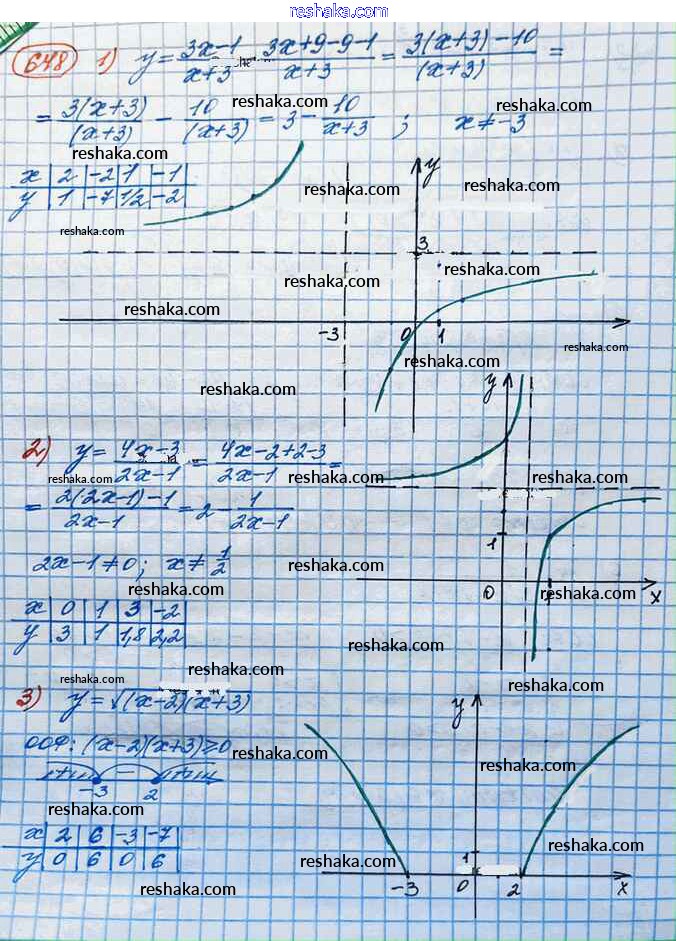 reshaka.com
648 1) y = (3x-1)/(x+3) = (3x+9-9-1)/(x+3) = (3(x+3)-10)/(x+3) =
reshaka.com
= 3(x+3)/(x+3) - 10/(x+3) = 3 - 10/(x+3) ; x ≠ -3
reshaka.com
x | 2 | -2 | 1 | -1
y | 1 | -7 | 1/2 | -2
reshaka.com reshaka.com
reshaka.com
y
3
reshaka.com reshaka.com
reshaka.com reshaka.com
-3 0 1
reshaka.com
reshaka.com
y
2) y = (4x-3)/(2x-1) = (4x-2+2-3)/(2x-1) =
reshaka.com reshaka.com
= (2(2x-1)-1)/(2x-1) = 2 - 1/(2x-1)
reshaka.com
1
2x-1≠0; x ≠ 1/2
reshaka.com
reshaka.com
0 1 x
reshaka.com
x | 0 | 1 | 3 | -2
y | 3 | 1 | 1,8 | 2,2
reshaka.com
reshaka.com
reshaka.com
reshaka.com
3) y = √(x-2)(x+3)
y
ООФ: (x-2)(x+3) ≥ 0
reshaka.com
reshaka.com
- -3 2
reshaka.com
x | 2 | 6 | -3 | -7
y | 0 | 6 | 0 | 6
reshaka.com
reshaka.com
1
-3 0 2 x
reshaka.com
reshaka.com